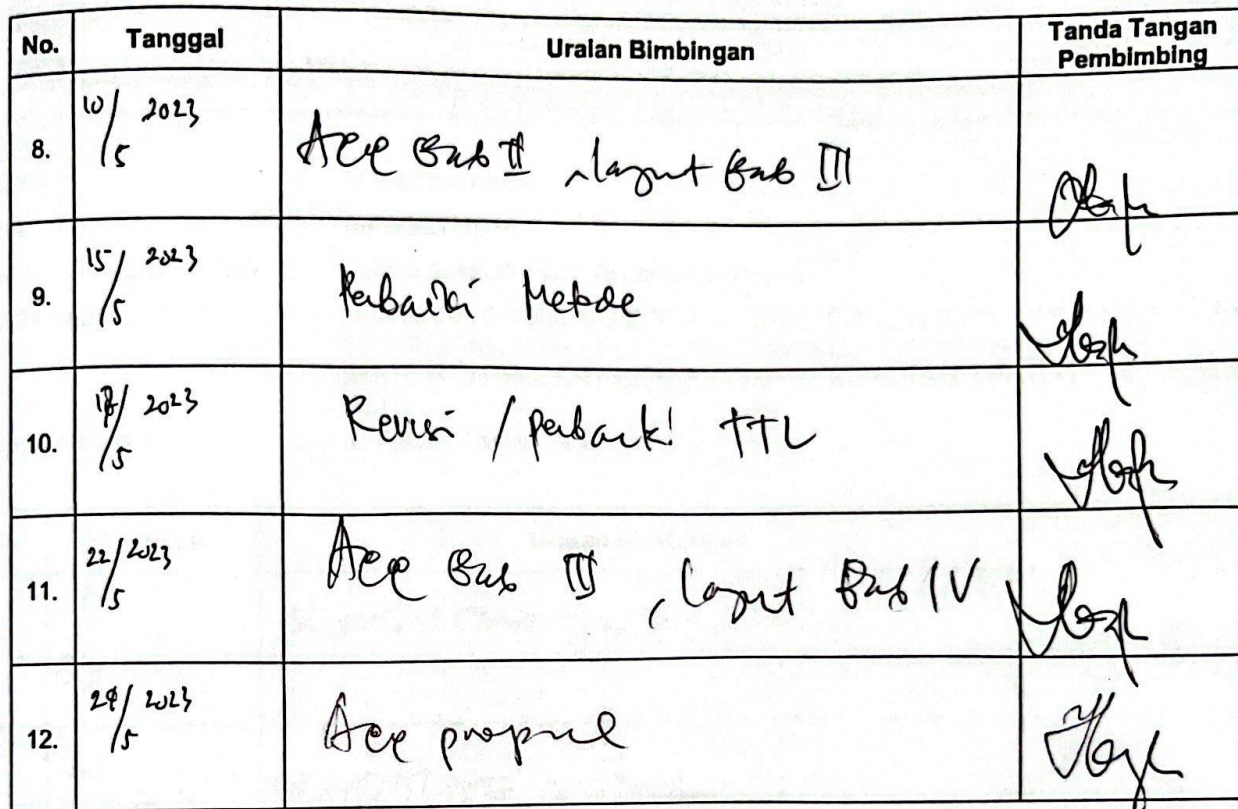 No. Tanggal Uraian Bimbingan Tanda Tangan
Pembimbing
8. 10/5 2023 Acc Bab II, lanjut Bab III
9. 15/5 2023 Perbaiki Metode
10. /5 2023 Revisi / perbaiki TTL
11. 22/5 2023 Acc Bab III, lanjut Bab IV
12. /5 2023 Acc proposal